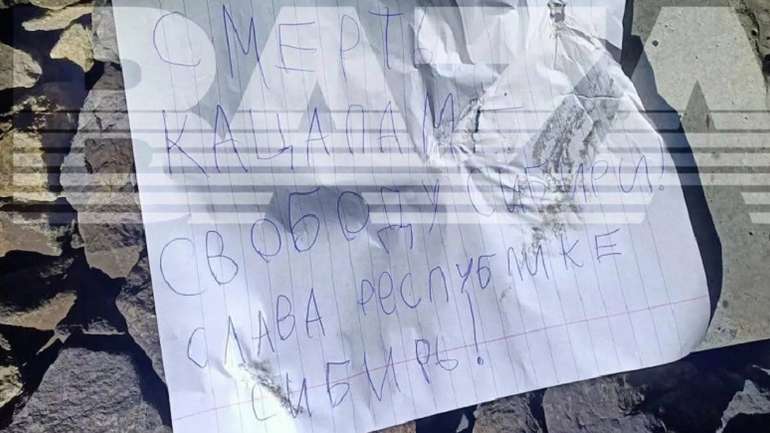 BAZA
СМЕРТЬ
КАЦАПАМ –
СВОБОДУ СИБИРИ!
СЛАВА РЕСПУБЛИКЕ
СИБИРЬ!